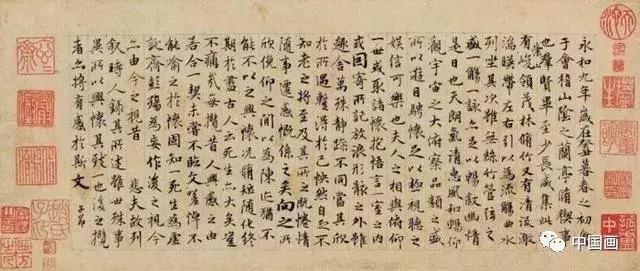 永和九年歲在癸丑暮春之初會
于會稽山陰之蘭亭脩禊事
也羣賢畢至少長咸集此地
有崇山峻領茂林脩竹又有清流激
湍暎帶左右引以為流觴曲水
列坐其次雖無絲竹管弦之
盛一觴一詠亦足以暢敘幽情
是日也天朗氣清惠風和暢仰
觀宇宙之大俯察品類之盛
所以遊目騁懷足以極視聽之
娛信可樂也夫人之相與俯仰
一世或取諸懷抱悟言一室之內
或因寄所託放浪形骸之外雖
趣舍萬殊靜躁不同當其欣
於所遇暫得於己怏然自足不
知老之將至及其所之既惓情
隨事遷感慨係之矣向之所
欣俛仰之間以為陳迹猶不
能不以之興懷況脩短隨化終
期於盡古人云死生亦大矣豈
不痛哉每攬昔人興感之由
若合一契未嘗不臨文嗟悼不
能喻之於懷固知一死生為虛
誕齊彭殤為妄作後之視今
亦由今之視昔悲夫故列
敘時人錄其所述雖世殊事
異所以興懷其致一也後之攬
者亦將有感於斯文 子昂
中国画